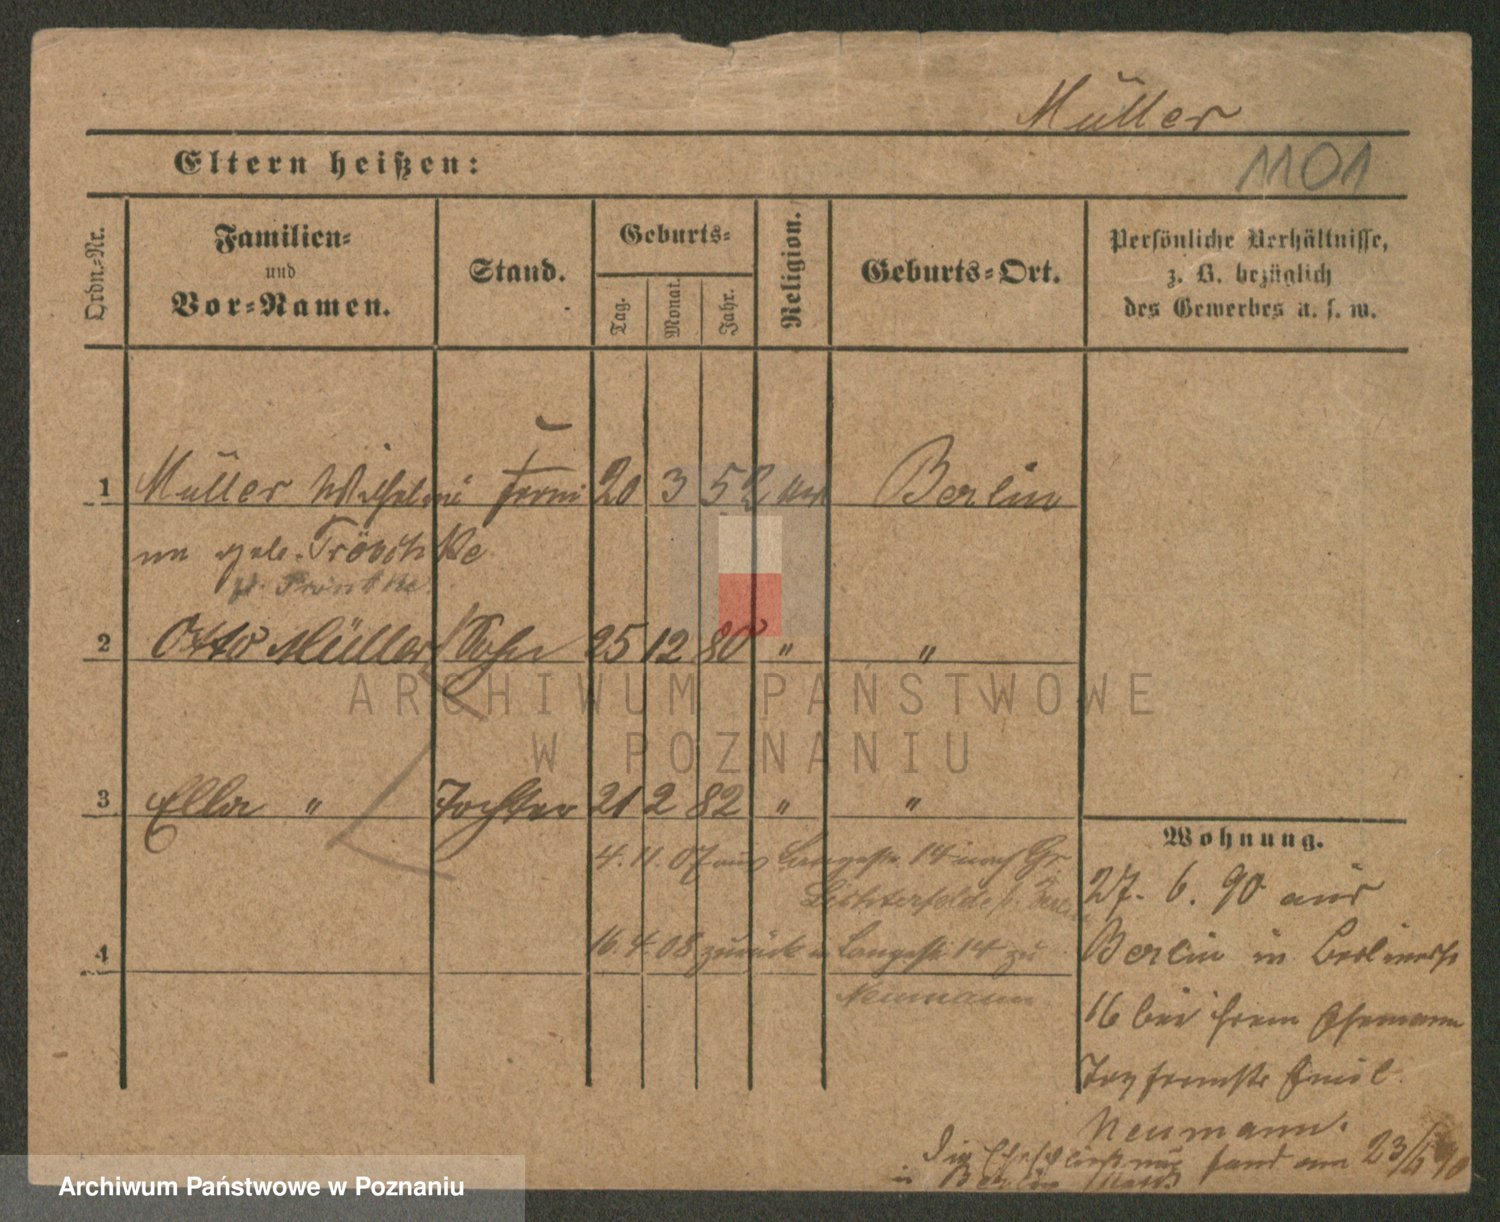 Müller
Eltern heißen:
1101
Ordn.-Nr.
Familien-
und
Vor-Namen.
Stand.
Geburts-
Tag.
Monat.
Jahr.
Religion.
Geburts-Ort.
Persönliche Verhältnisse,
z. B. bezüglich
des Gewerbes u. s. w.
1 Müller Wilhelmi 20 3 52 Berlin
ne geb.
2 Otto Müller Sohn 25 12 80 " "
3 Ella " Tochter 21 2 82 " "
4. 11. 07 aus Langestr. 14 nach Gr.
Lichterfelde b. Berlin
4 16. 4 08 zurück n Langestr 14 zu
Neumann
Wohnung.
27. 6. 90 aus
Berlin in Berlinerstr
16 bei ihrem Ehemann
Emil
Neumann.
Die Eheschließung fand am 23/6 90
in Berlin statt
ARCHIWUM PAŃSTWOWE
W POZNANIU
Archiwum Państwowe w Poznaniu